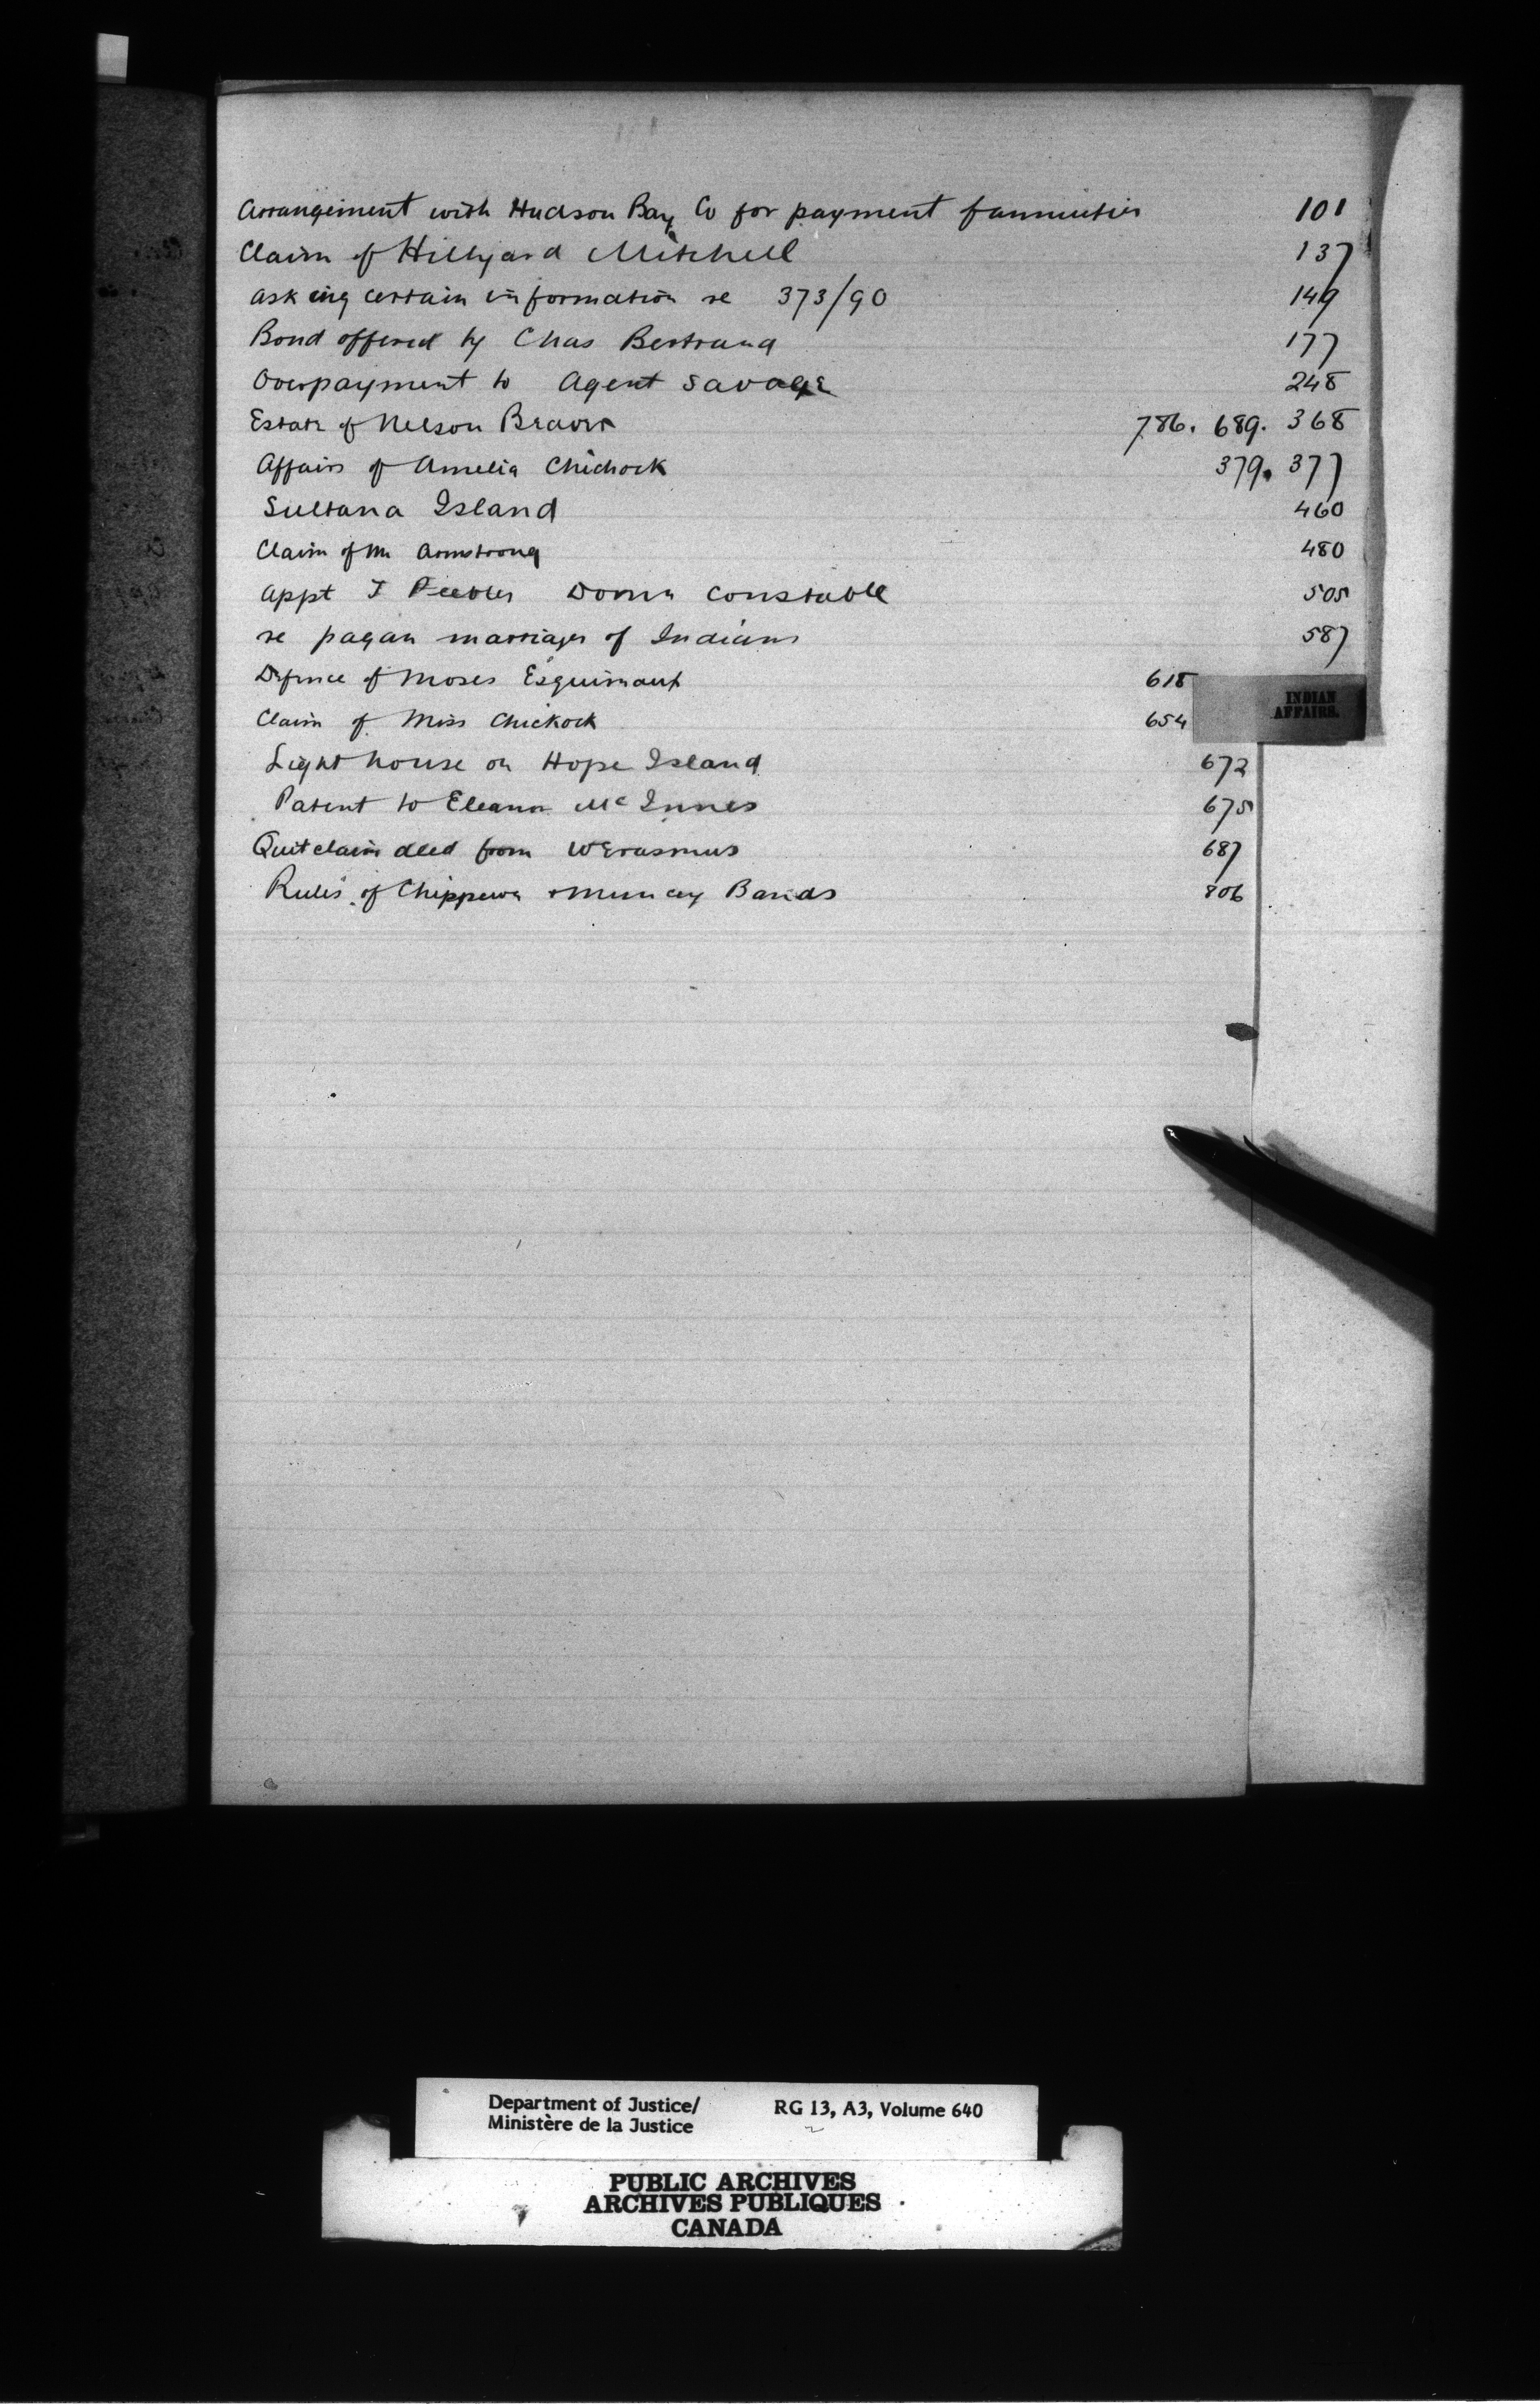 Arrangement with Hudson Bay Co for payment f annuities 101
Claim of Hillyard Mitchell 137
asking certain information re 373/90 149
Bond offered by Chas Bertrand 177
Overpayment to Agent Savage 248
Estate of Nelson Beaver 786. 689. 368
Affairs of Amelia Chichock 379. 377
Sultana Island 460
Claim of Mr Armstrong 480
Appt J Peebles Domn Constable 505
re pagan marriages of Indians 587
Defence of Moses Esquimaux 618
INDIAN
AFFAIRS.
Claim of Miss Chickock 654
Light house on Hope Island 672
Patent to Eleanor McInnes 675
Quit claim deed from W Erasmus 687
Rules of Chippewa & Muncey Bands 806
Department of Justice/ RG 13, A3, Volume 640
Ministère de la Justice
PUBLIC ARCHIVES
ARCHIVES PUBLIQUES
CANADA